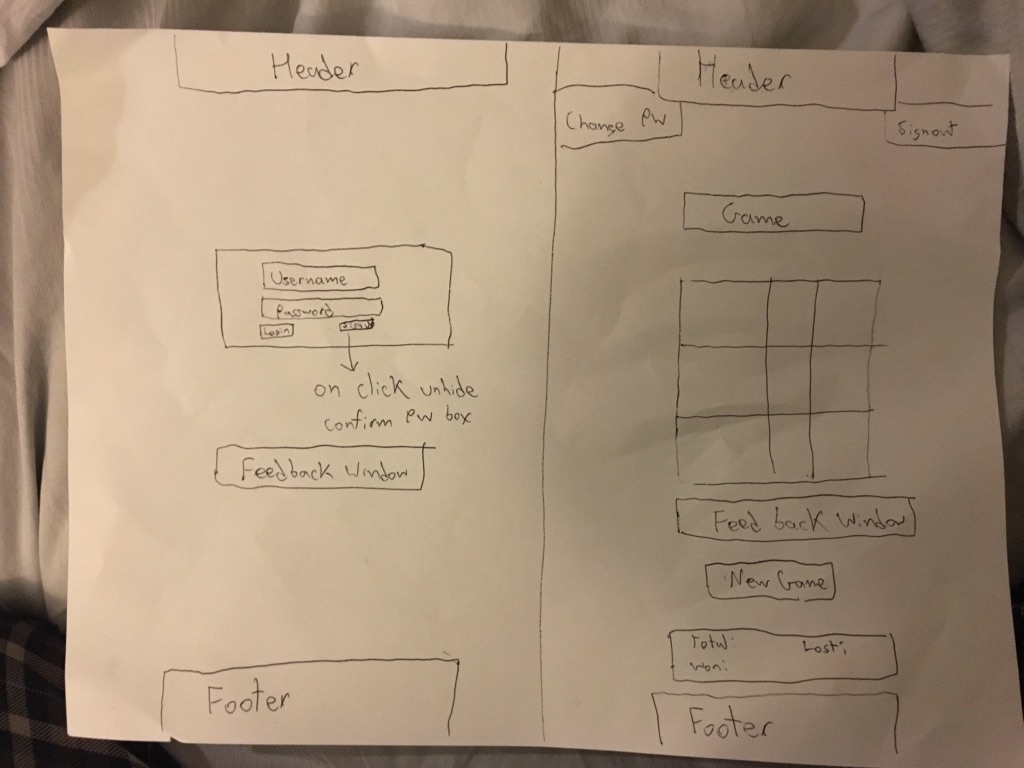 Header
Username
Password
Login
on click unhide
confirm PW box
Feedback Window
Footer
Header
Change PW
Signout
Game
Feed back Window
New Game
Total: Lost:
Won:
Footer